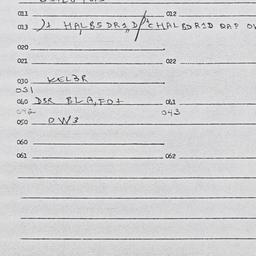 011 012
013 )1 HALBSDR1D/CHALBDR1D
020
021 022
030 KELBR
031
040 DSR BLA,FD+ 041
042 043
050 OW3
060
061 062